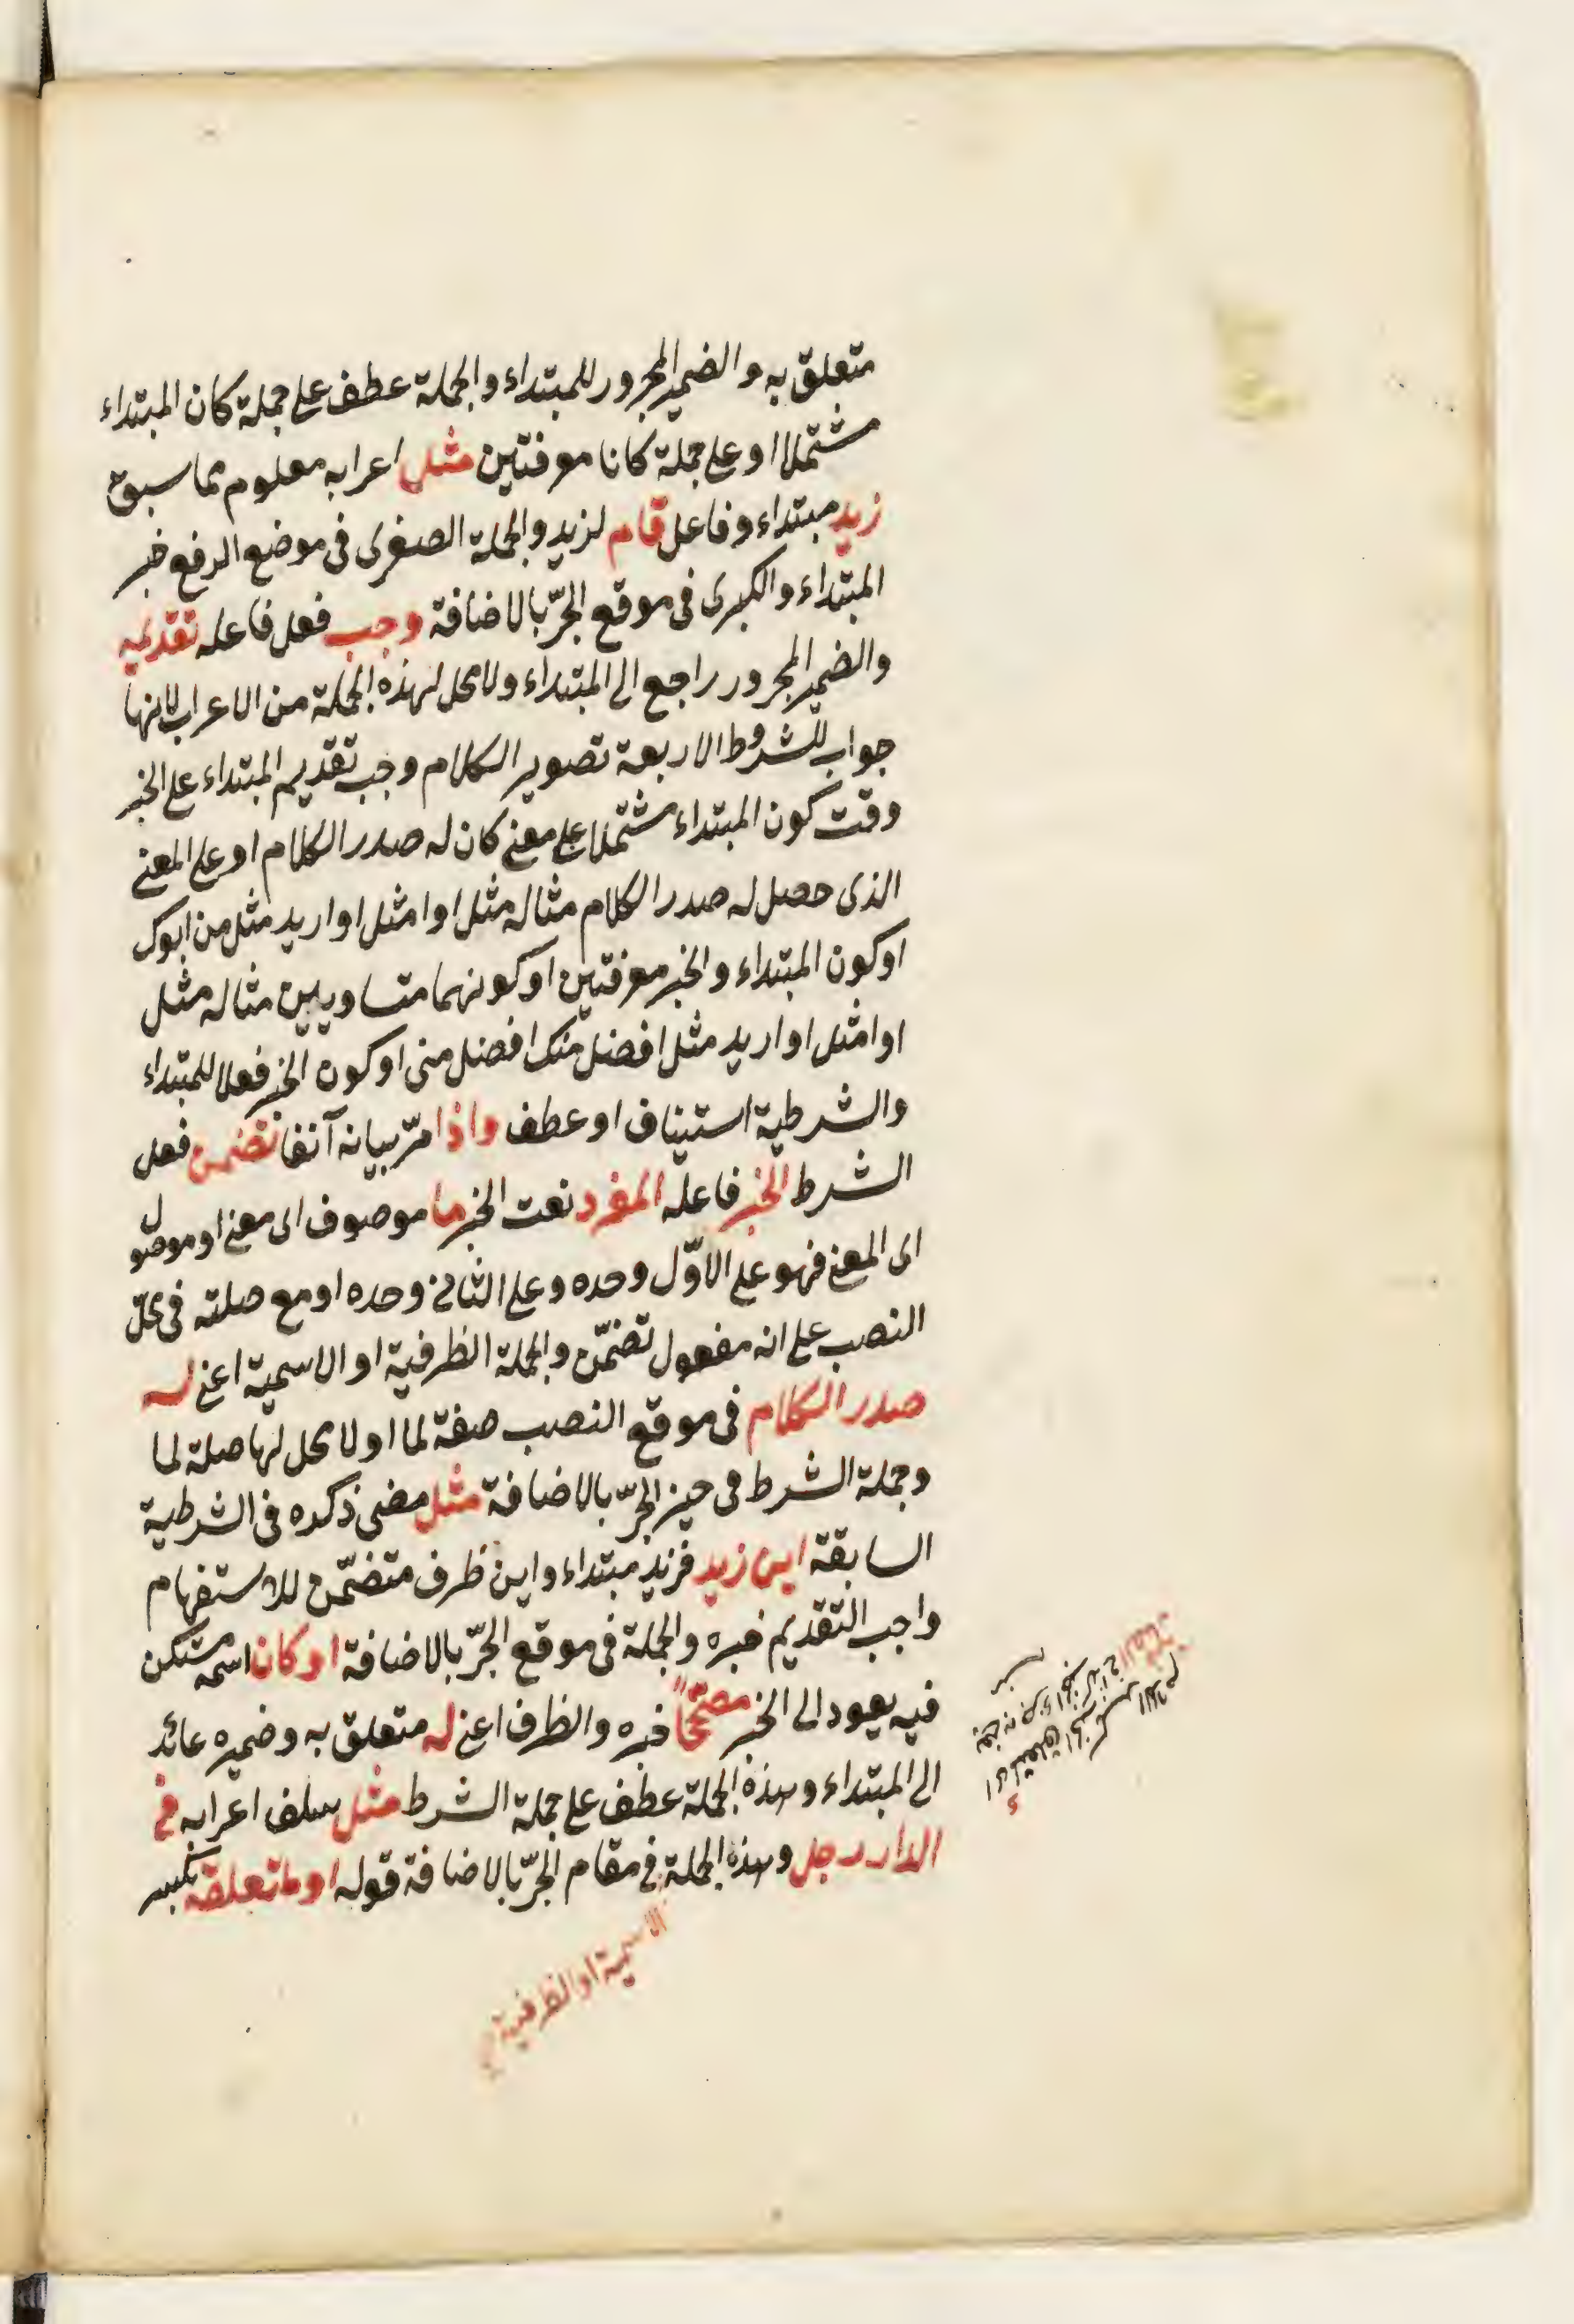 متعلق به والضمير المجرور للمبتداء والجملة عطف على جملة كان المبتداء
مشتملا او على جملة كانا معرفتين مثل اعرابه معلوم مما سبق
زيد مبتداء وفاعل قام لزيد والجملة الصغرى فى موضع الرفع خبر
المبتداء والكبرى فى موقع الجرّ بالاضافة وجب فعل فاعله تقديمه
والضمير المجرور راجع الى المبتداء ولا محل لهذه الجملة من الاعراب لانها
جواب للشروط الاربعة تصوير الكلام وجب تقديم المبتداء على الخبر
وقت كون المبتداء مشتملا على معنى كان له صدر الكلام او على المعنى
الذى حصل له صدر الكلام مثاله مثل او امثل او اريد مثل من ابوك
او كون المبتداء والخبر معرفتين او كونهما متساويين مثاله مثل
او امثل او اريد مثل افضل منك افضل منى او كون الخبر فعلا للمبتداء
والشرطية استيناف او عطف واذا مرّ بيانه آنفا تضمن فعل
الشرط الخبر فاعله المفرد نعت الخبر ما موصوف اى معنى او موصول
اى المعنى فهو على الاوّل وحده وعلى الثانى وحده او مع صلته فى محلّ
النصب على انه مفعول تضمّن والجملة الظرفية او الاسمية اعنى له
صدر الكلام فى موقع النصب صفة لما او لا محل لها صلة لما
وجملة الشرط فى حيز الجرّ بالاضافة مثل مضى ذكره فى الشرطية
السابقة اين زيد فزيد مبتداء واين ظرف متضمّن للاستفهام
واجب التقديم خبره والجملة فى موقع الجرّ بالاضافة او كان اسمه مستكن
فيه يعود الى الخبر مصحّحاً خبره والظرف اعنى له متعلق به وضميره عائد
الى المبتداء وهذه الجملة عطف على جملة الشرط مثل سلف اعرابه فى
الدار رجل وهذه الجملة فى مقام الجرّ بالاضافة قوله او لمتعلقه بكسر
الاسمية او الظرفية